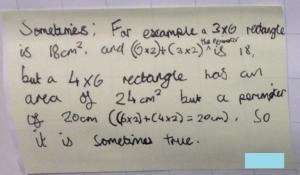 Sometimes; For example a 3x6 rectangle
is 18cm², and (6x2)+(3x2) the perimeter is 18,
but a 4x6 rectangle has an
area of 24cm² but a perimiter
of 20cm ((6x2)+(4x2)=20cm). So
it is sometimes true.